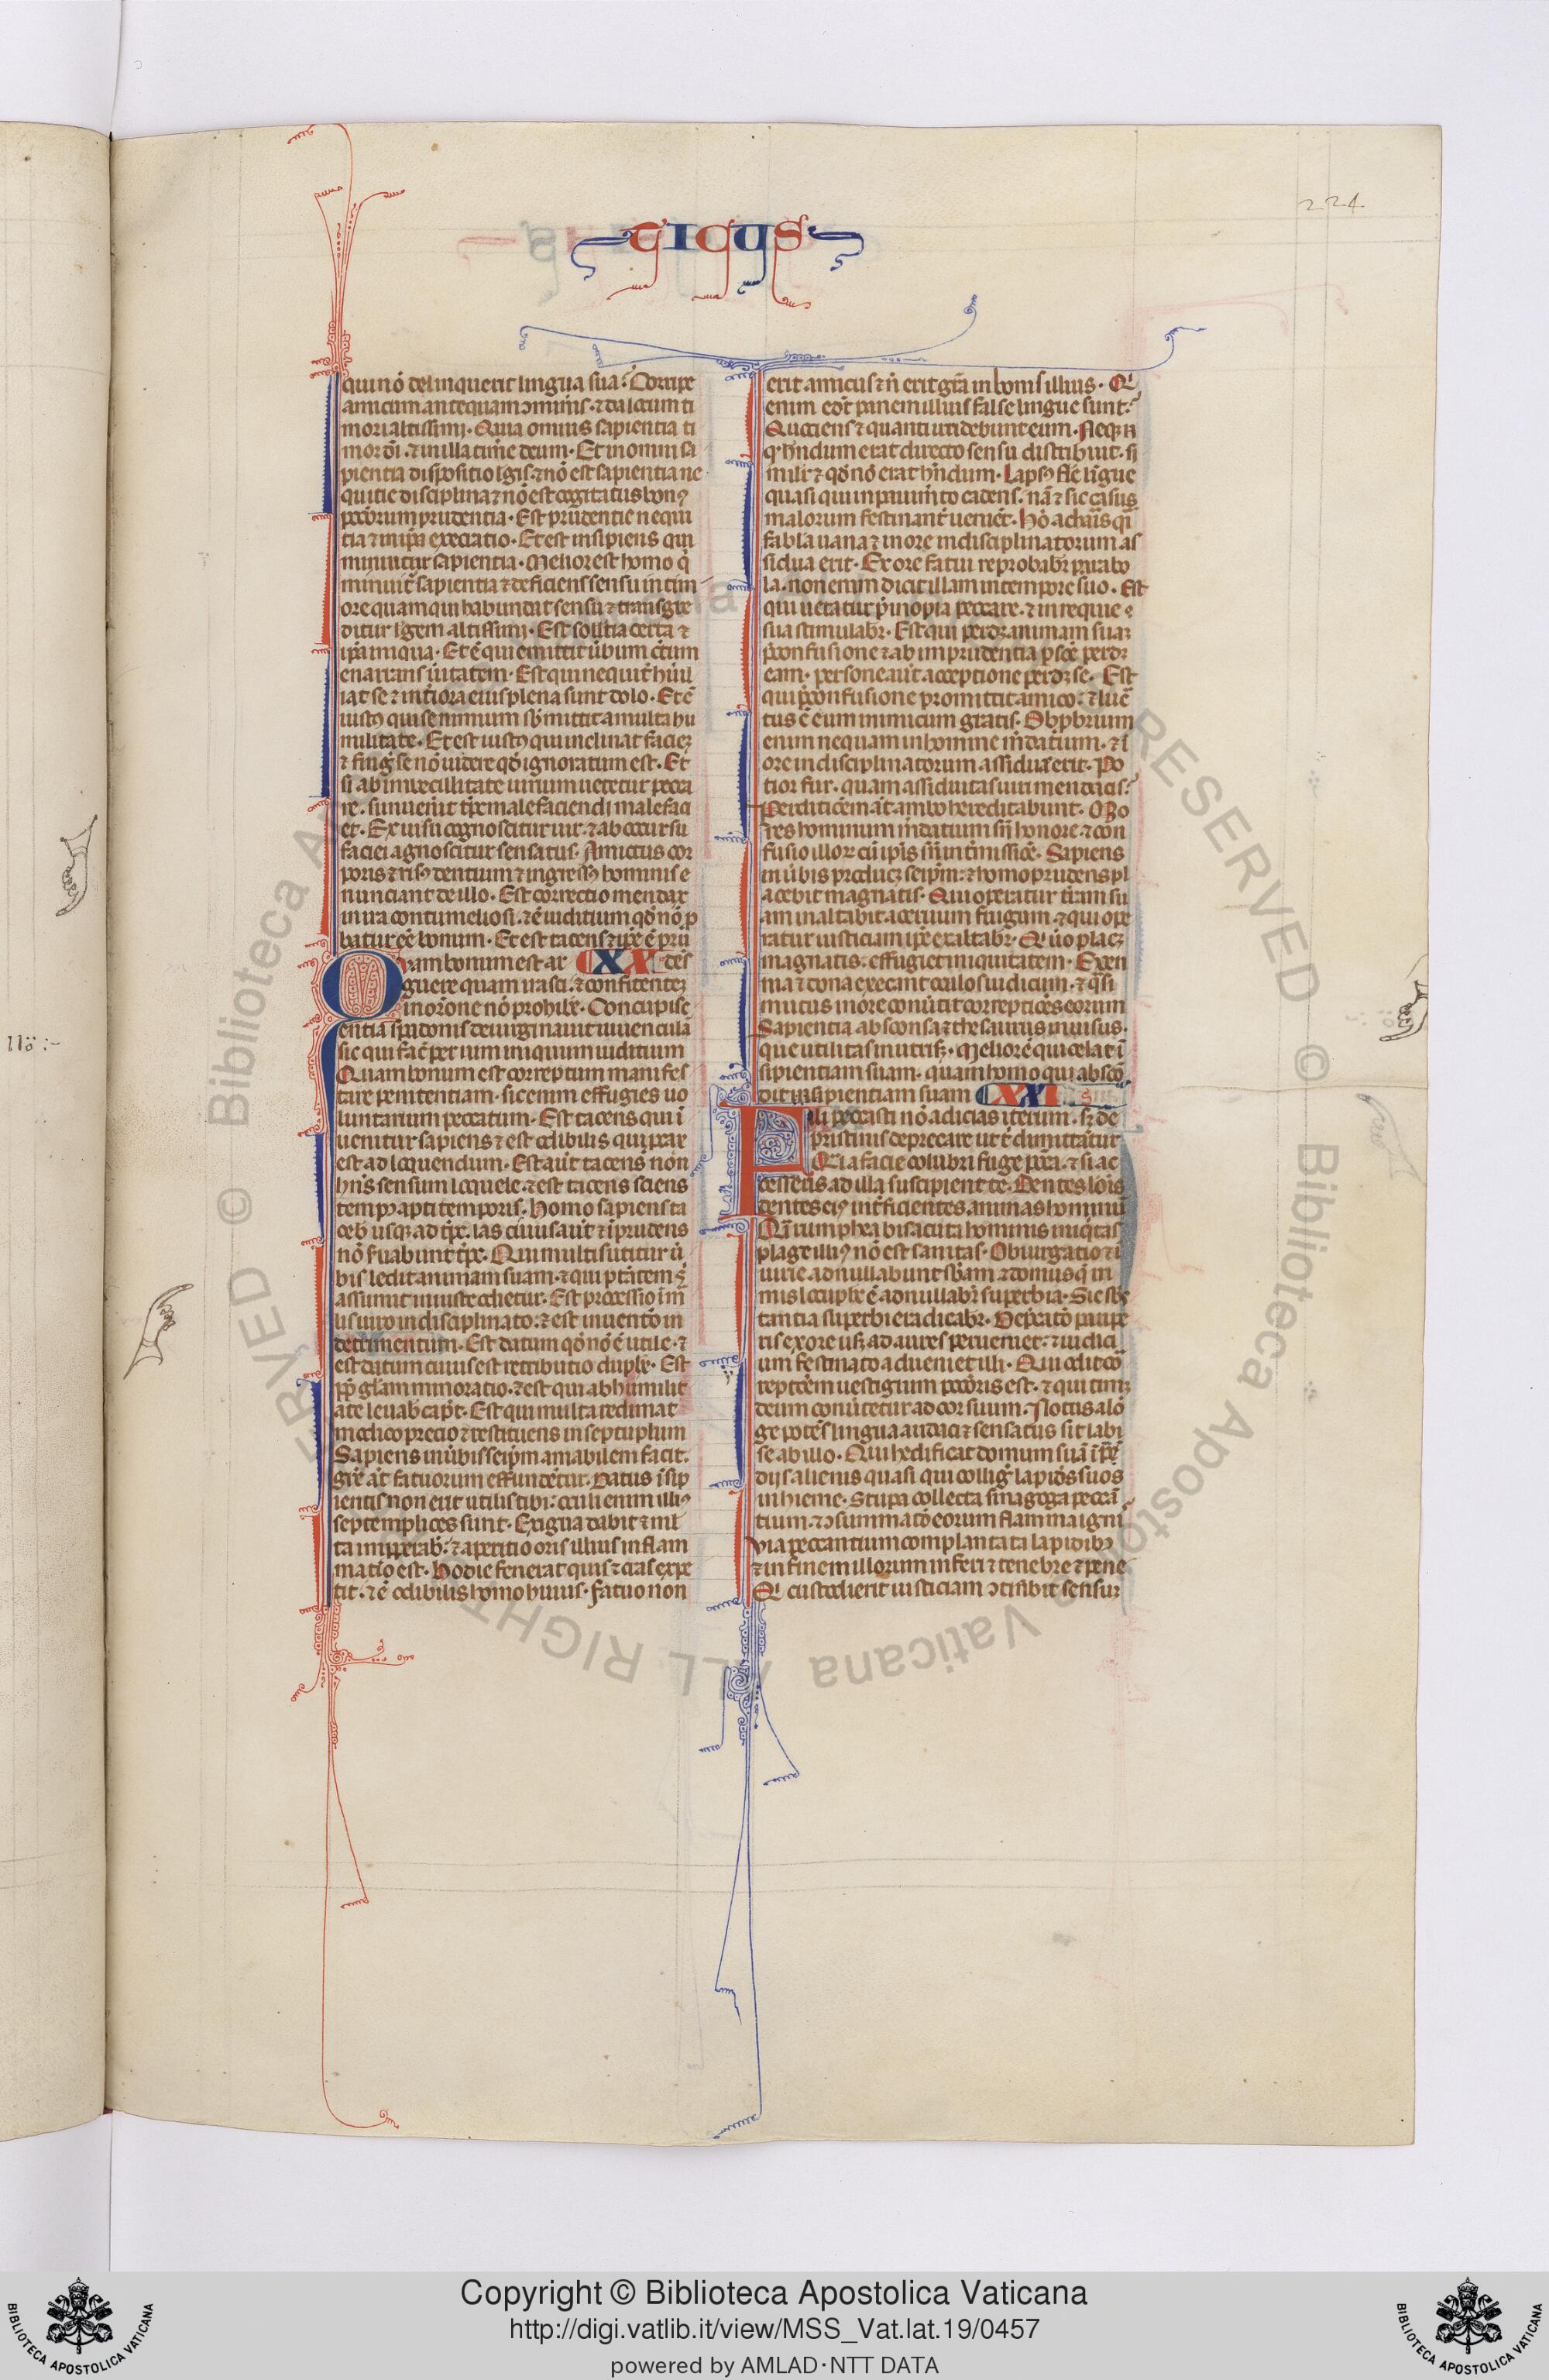 224
TICUS
qui nō delinquerit lingua sua? Corripe
amicum antequam ɔmineris · ⁊ da locum ti
mori altissimi · Quia omnis sapientia ti
mor dī · ⁊ in illa time deum · Et in omni sa
pientia dispositio lgis · ⁊ nō est sapientia ne
quitie disciplina ⁊ nō est cogitatus bonꝰ
pctōrum prudentia · Est prudentie nequi
tia ⁊ in ip̄a execratio · Et est insipiens qui
minuitur sapientia · Melior est homo q̇
minuit sapientia ⁊ deficiens sensu in tim
ore quam qui habundat sensu ⁊ transgre
ditur lgem altissimi · Est sollertia certa ⁊
ip̄a iniqua · Et ē qui emittit ūbum certum
enarrans ūitatem · Est qui nequit̄ hūil
iat se ⁊ int̄iora eius plena sunt dolo · Et ē
iustꝰ qui se nimium sb̄mittit a multa hu
militate · Et est iustꝰ qui inclinat faciem
⁊ fingit se nō uidere qd̄ ignoratum est · Et
si ab imbecillitate uirium uetetur pecca
re · si inuenit tp̄s malefaciendi malefaci
et · Ex uisu cognoscitur uir · ⁊ ab occursu
faciei agnoscitur sensatus · Amictus cor
poris ⁊ risꝰ dentium ⁊ ingressꝰ hominis e
nunciant de illo · Est correctio mendax
in ira contumeliosi · ⁊ ē iuditium qd̄ nō ꝓ
batur eē bonum · Et est tacens ⁊ ip̄e ē prū
Quam bonum est ar XX dēs
guere quam irasci · ⁊ confitentem
in orōne nō prohibere · Concupisc
entia spadonis deuirginauit iuuenculā
sic qui facit per uim iniquum iuditium
Quam bonum est correptum manifes
tare penitentiam · sic enim effugies uo
luntarium peccatum · Est tacens qui ī
uenitur sapiens ⁊ est odibilis qui procax
est ad loquendum · Est aūt tacens non
hn̄s sensum loquele · ⁊ est tacens sciens
tempꝰ apti temporis · Homo sapiens ta
ceb̄ usqꝫ ad tp̄s · lasciuus aūt ⁊ īprudens
nō s̄uabunt tp̄s · Qui multis utitur ū
bis ledit animam suam · ⁊ qui ptātem s̄
assumit iniuste odietur · Est processio ī m̄
lis uiro indisciplinato · ⁊ est inuentō in
detrimentum · Est datum qd̄ nō ē utile · ⁊
est datum cuius est retributio duplex · Est
ꝓp̄ gl̄am minoratio · ⁊ est qui ab humilit
ate leuab̄ caput · Est qui multa redimat
modico precio ⁊ restituens in septuplum
Sapiens in ūbis seip̄m amabilem facit ·
gr̄e aūt fatuorum effundētur · Datus īsip
ientis non erit utilis tibi · oculi enim illiꝰ
septemplices sunt · Exigua dabit ⁊ ml
ta improperab̄ · ⁊ apertio oris illius inflam
matio est · Hodie fenerat quis ⁊ cras expe
tit · ⁊ ē odibilis homo huius · Fatuo non
erit amicus ⁊ n̄ erit gr̄a in bonis illius · Q̇
enim edūt panem illius false lingue sunt ·
Quociens ⁊ quanti irridebunt eum · Neqꝫ n̄
q̇ hn̄dum erat directo sensu distribuit · si
mili ⁊ qd̄ nō erat hn̄dum · Lapsꝰ fal̄e līgue
quasi qui in pauimento cadens · nā ⁊ sic casus
malorum festinant̄ ueniēt · Hō acharis q̄i
fabla uana ⁊ in ore indisciplinatorum as
sidua erit · Ex ore fatui reprobabit̄ parabo
la · non enim dicit illam in tempore suo · Est
qui uetatur p̄ inopia peccare · ⁊ in requie
sua stimulab̄r · Est qui perdet animam suaꝫ
p̄ confusione ⁊ ab imprudenti a ꝑsōa perdet
eam · persone aūt acceptione perdet se · Est
qui p̄ confusione promittit amico · ⁊ lucrā
tus ē eum inimicum gratis · Obpbrium
enim nequam in homine mēdatium · ⁊ ī
ore indisciplinatorum assidue erit · Po
tior fur · quam assiduitas uiri mendacis ·
Perditiōem aūt ambo hereditabunt · Mo
res hominum mēdatium sn̄ honore · ⁊ con
fusio illorꝫ cū ip̄is sn̄ intermissiōe · Sapiens
in ūbis producet seip̄m · ⁊ homo prudens pl
acebit magnatis · Qui operatur tr̄am su
am inaltabit aceruum frugum · ⁊ qui ope
ratur iusticiam ip̄e exaltabr̄ · Qui ūo placꝫ
magnatis · effugiet iniquitatem · Exen
ia ⁊ dona excecant oculos iudicum · ⁊ q̄si
mutus in ore conūtit correptiōes eorum
Sapientia absconsa ⁊ thesaurus inuisus ·
que utilitas in utrisqꝫ · Melior ē qui celat ī
sipientiam suam · quam homo qui abscō
dit insipientiam suam XXI
Fili peccasti nō adicias iterum · sꝫ de
pristinis deprecare ut t̄ dimittātur
Quasi a facie colubri fuge pccā · ⁊ si ac
cesseris ad illa suscipient te · Dentes leōis
dentes eiꝰ int̄ficientes animas hominū
Quasi rumphea bisacuta hominis iniq̇tas
plage illiꝰ nō est sanitas · Obiurgatio ⁊ in
iurie adnullabunt sb̄am ⁊ domus q̄ ni
mis locuples ē adnullabr̄ superbia · Sic sb̄s
tantia superbi eradicabr̄ · Deprecatō paupe
ris ex ore usqꝫ ad aures perueniet · ⁊ iudici
um festinato adueniet illi · Qui odit cor
reptiōem uestigium peccōris est · ⁊ qui timꝫ
deum conūtetur ad cor suum · Notus a lō
ge potēs lingua audaci ⁊ sensatus sit labi
se ab illo · Qui hedificat domum suā īpēs̄
dijs alienis quasi qui colligit lapides suos
in hieme · Stupa collecta sinagoga peccā
tium · ⁊ ɔsummatō eorum flamma igni
Via peccantium complantata lapidibꝰ
⁊ in finem illorum inferi ⁊ tenebre ⁊ pene
Q̇ custodierit iusticiam ɔtinebit sensum
Copyright © Biblioteca Apostolica Vaticana
http://digi.vatlib.it/view/MSS_Vat.lat.19/0457
powered by AMLAD·NTT DATA
BIBLIOTECA APOSTOLICA VATICANA
BIBLIOTECA APOSTOLICA VATICANA